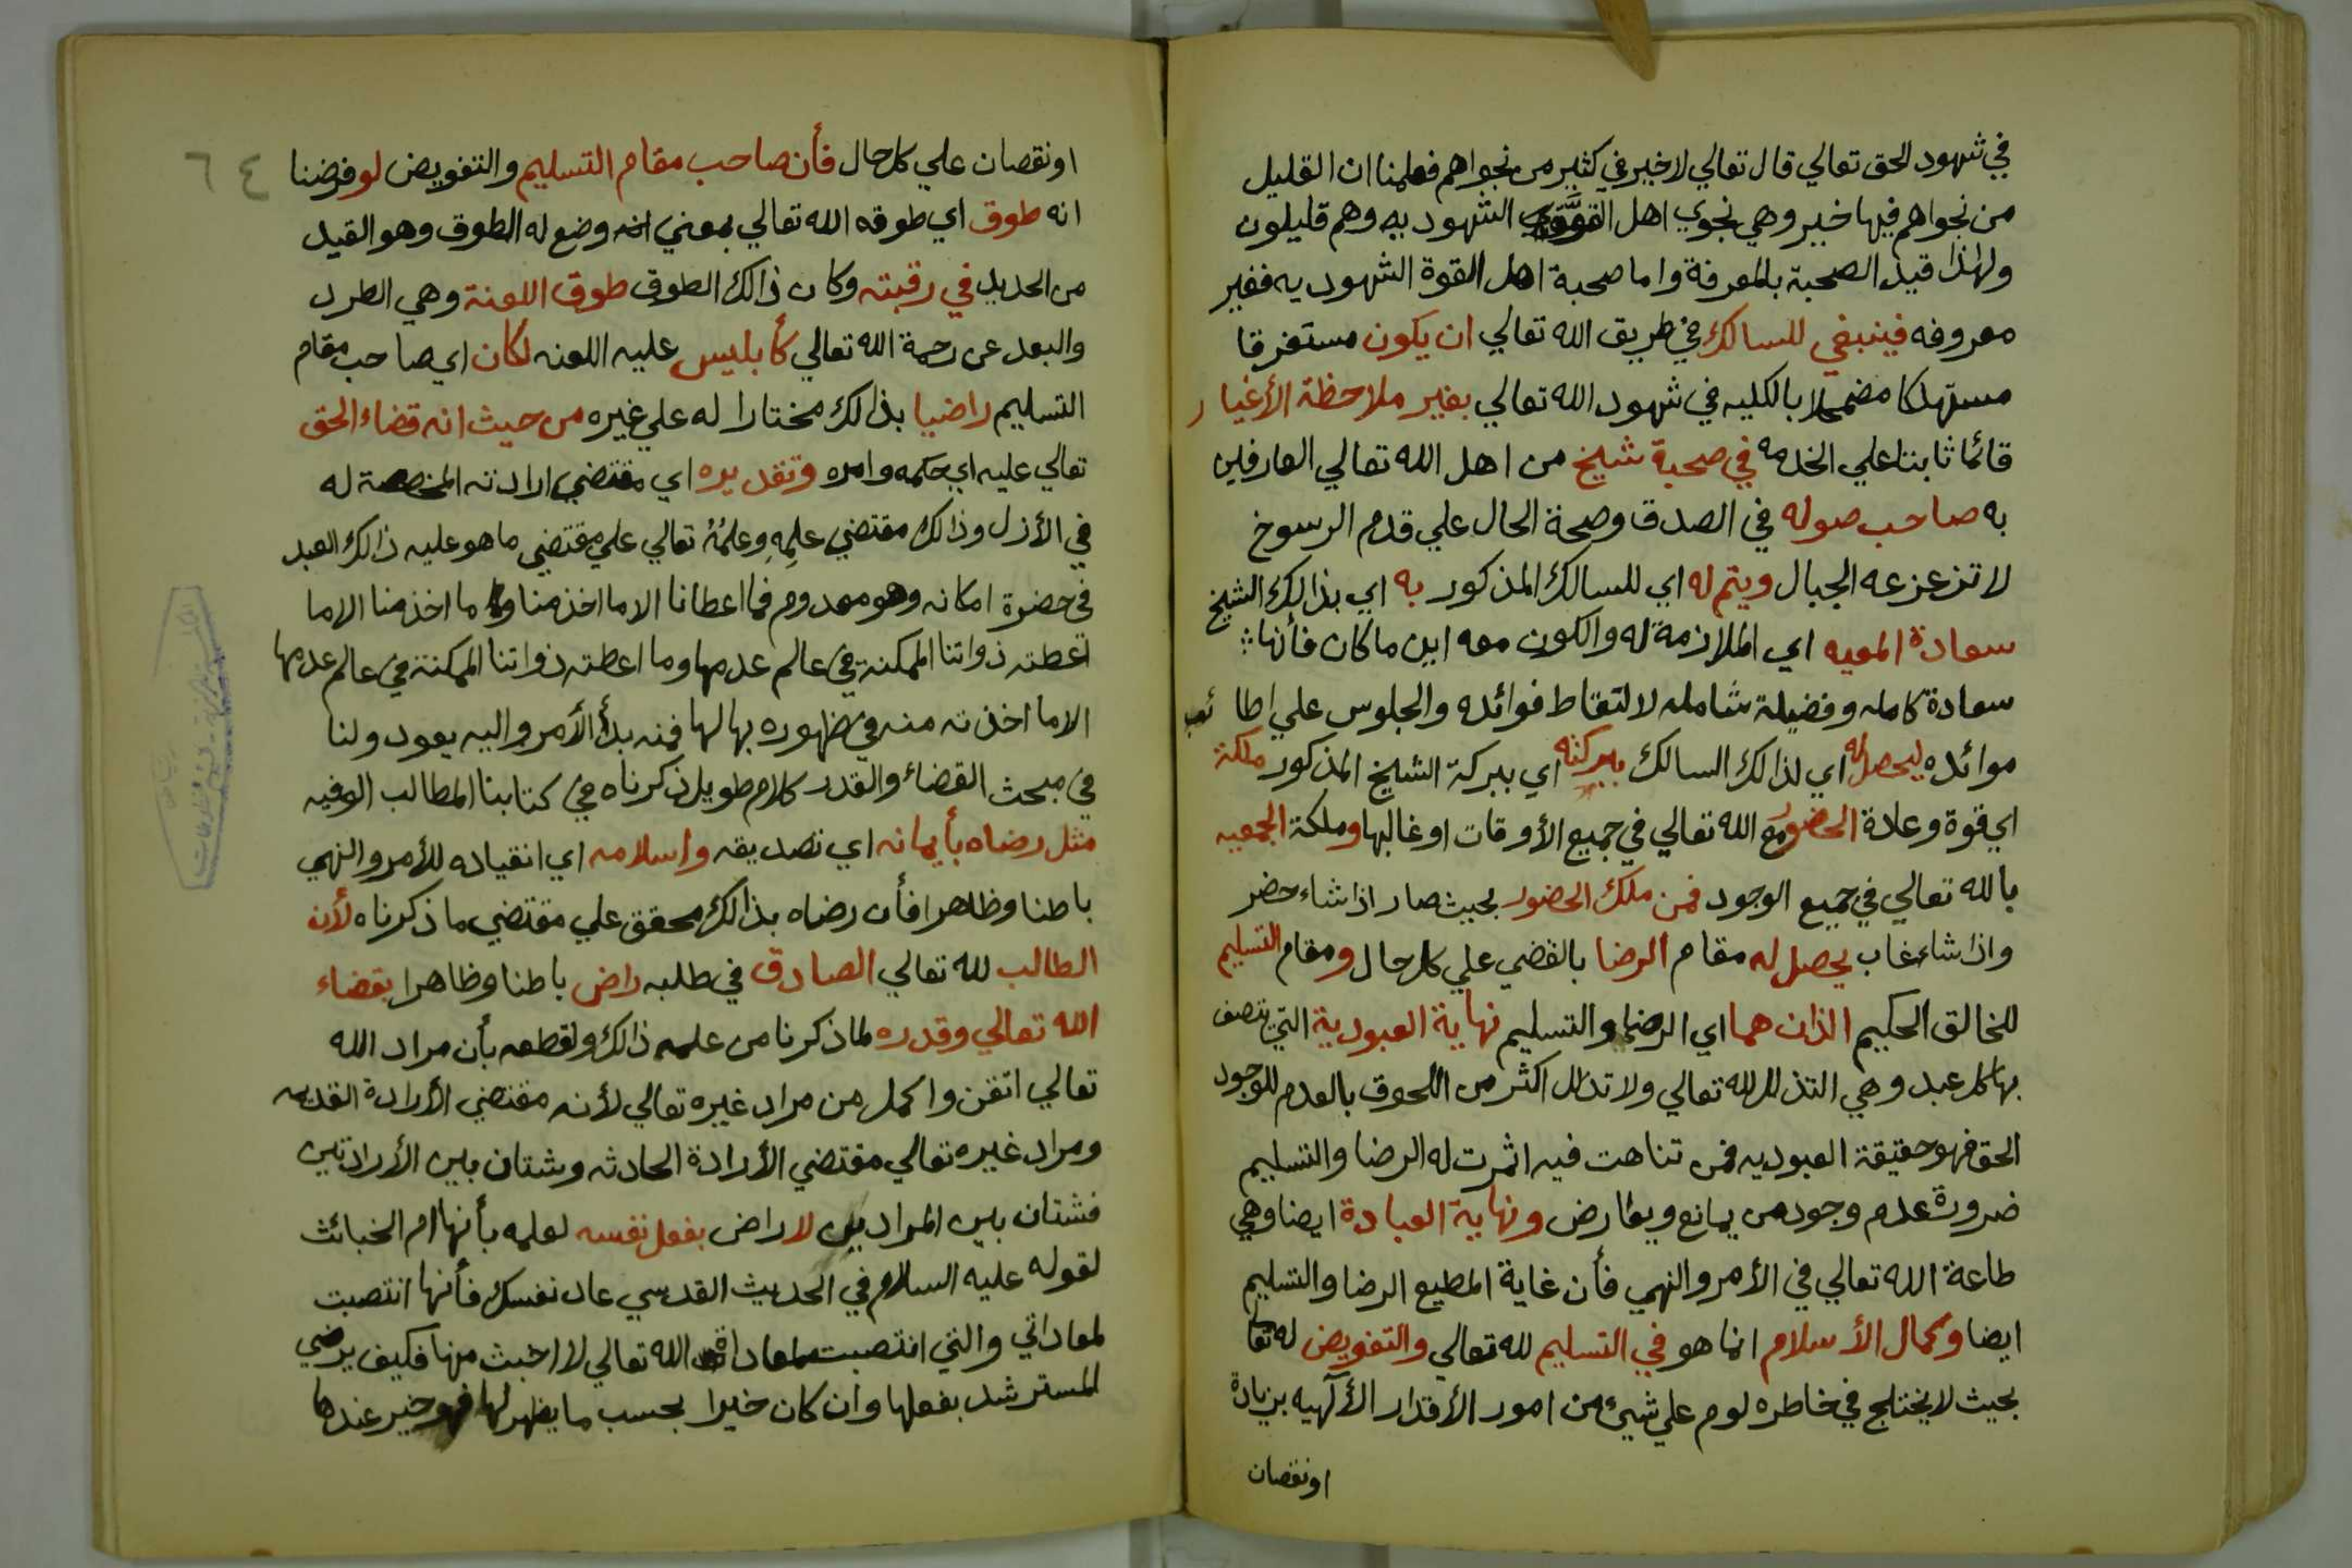 في شهود الحق تعالي قال تعالي لا خير في كثير من نجواهم فعلمنا ان القليل
من نجواهم فيها خير وهي نجوي اهل القوة الشهوديه وهم قليلون
ولهذا قيد الصحبة بالمعرفة واما صحبة اهل القوة الشهوديه فغير
معروفه فينبغي للسالك في طريق الله تعالي ان يكون مستغرقا
مستهلكا مضمحلا بالكليه في شهود الله تعالي بغير ملاحظة الأغيار
قائما ثابتا علي الخدمه في صحبة شيخ من اهل الله تعالي العارفين
به صاحب صوله في الصدق وصحة الحال علي قدم الرسوخ
لا تزعزعه الجبال ويتم له اي للسالك المذكور به اي بذالك الشيخ
سعادة المعيه اي الملازمة له والكون معه اين ما كان فأنها
سعادة كامله وفضيلة شامله لالتقاط فوائده والجلوس علي اطائب
موائده ليحصل له اي لذالك السالك ببركته اي ببركة الشيخ المذكور ملكة
اي قوة وعادة الحضور مع الله تعالي في جميع الأوقات او غالبها وملكة الجمعيه
بالله تعالي في جميع الوجود فمن ملك الحضور بحيث صار اذا شاء حضر
واذا شاء غاب يحصل له مقام الرضا بالقضي علي كل حال ومقام التسليم
للخالق الحكيم الذان هما اي الرضا والتسليم نهاية العبودية التي تتصف
بها كل عبد وهي التذلل لله تعالي ولا تذلل اكثر من اللحوق بالعدم للوجود
الحق فهو حقيقة العبوديه فمن تناهت فيه اثمرت له الرضا والتسليم
ضرورة عدم وجود من يمانع ويعارض ونهاية العبادة ايضا وهي
طاعة الله تعالي في الأمر والنهي فأن غاية المطيع الرضا والتسليم
ايضا وكمال الأسلام انما هو في التسليم لله تعالي والتفويض له تعا
بحيث لا يختلج في خاطره لوم علي شيء من امور الأقدار الألهيه بزيادة
او نقصان
٦٤
او نقصان علي كل حال فأن صاحب مقام التسليم والتفويض لو فرضنا
انه طوق اي طوقه الله تعالي بمعني انه وضع له الطوق وهو القيد
من الحديد في رقبته وكان ذالك الطوق طوق اللعنة وهي الطرد
والبعد عن رحمة الله تعالي كأبليس عليه اللعنه لكان اي صاحب مقام
التسليم راضيا بذالك مختارا له علي غيره من حيث انه قضاء الحق
تعالي عليه اي حكمه وامره وتقديره اي مقتضي ارادته المخصصة له
في الأزل وذالك مقتضي علمِهِ وعلمُهُ تعالي علي مقتضي ما هو عليه ذالك العبد
في حضرة امكانه وهو معدوم فما اعطانا الا ما اخذ منا وما اخذ منا الا ما
اعطته ذواتنا الممكنة في عالم عدمها وما اعطته ذواتنا الممكنة في عالم عدمها
الا ما اخذته منه في ظهوره بها لها فمنه بدأ الأمر واليه يعود ولنا
في مبحث القضاء والقدر كلام طويل ذكرناه في كتابنا المطالب الوفيه
مثل رضاه بأيمانه اي تصديقه واسلامه اي انقياده للأمر والنهي
باطنا وظاهرا فأن رضاه بذالك محقق علي مقتضي ما ذكرناه لأن
الطالب لله تعالي الصادق في طلبه راض باطنا وظاهرا بقضاء
الله تعالي وقدره لما ذكرنا من علمه ذالك ولقطعه بأن مراد الله
تعالي اتقن واكمل من مراد غيره تعالي لأنه مقتضي الأرادة القديمه
ومراد غيره تعالي مقتضي الأرادة الحادثه وشتان بين الأرادتين
فشتان بين المرادين لا راض بفعل نفسه لعلمه بأنها ام الخبائث
لقوله عليه السلام في الحديث القدسي عاد نفسك فأنها انتصبت
لمعاداتي والتي انتصبت لمعاداة الله تعالي لا اخبث منها فكيف يرضي
المسترشد بفعلها وان كان خيرا بحسب ما يظهر لها فهو خير عندها